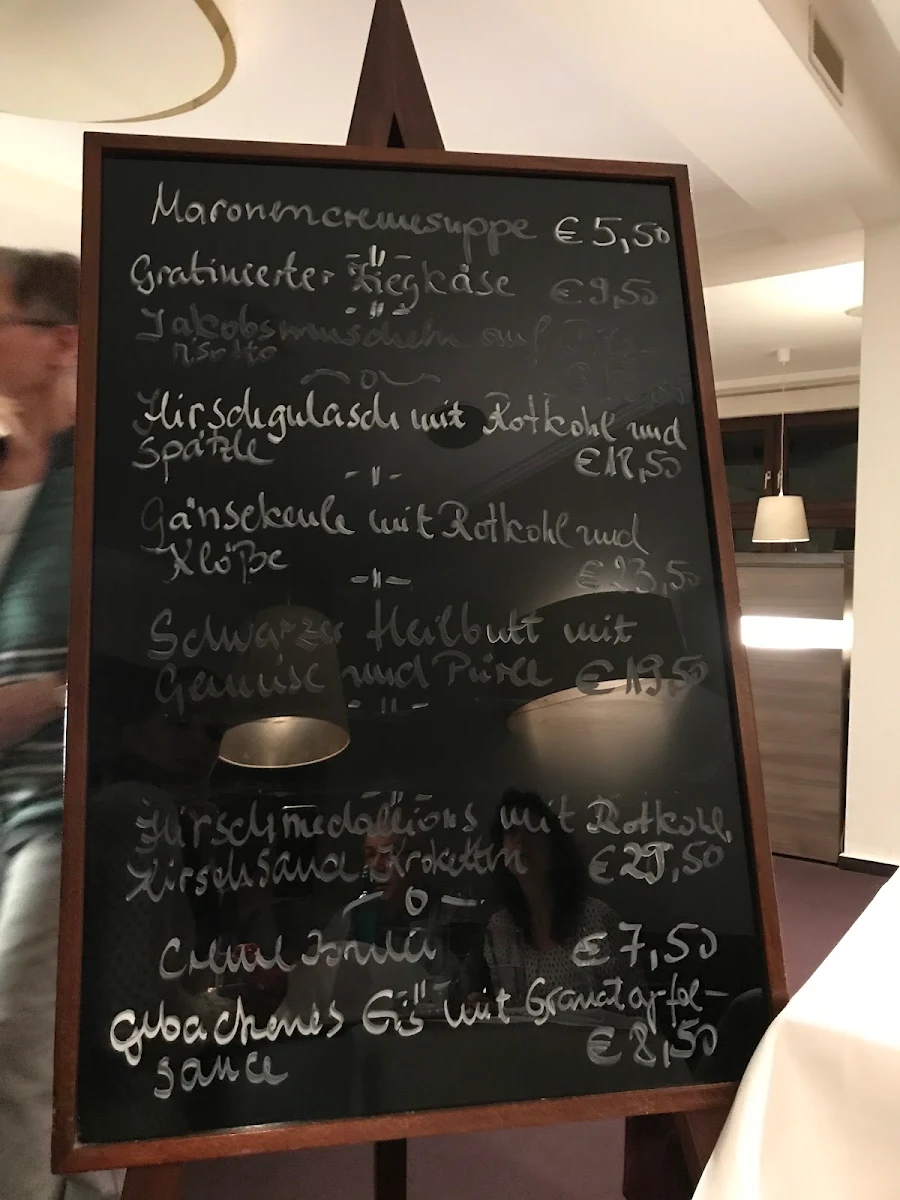 Maronencremesuppe € 5,50
-"-
Gratinierter Ziegkäse € 9,50
-"-
Jakobsmuscheln auf
risotto
Hirschgulasch mit Rotkohl und
Spätzle € 18,50
-"-
Gänsekeule mit Rotkohl und
Klöße
-"- € 23,50
Schwarzer Heilbutt mit
Gemüse und Püree € 19,50
-"-
-"-
Hirschmedallions mit Rotkohl,
Kirschsauce Kroketten € 25,50
- o -
Creme Brulée € 7,50
-"-
Gebackenes Eis mit Granatapfel-
sauce € 8,50